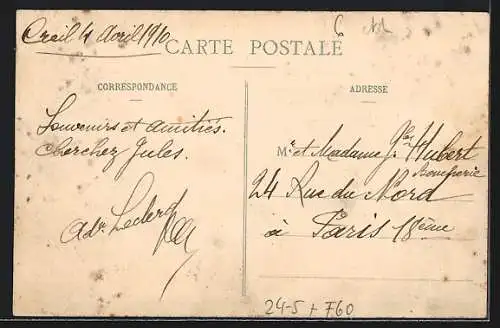 Creil 4 Avril 1910
6
CARTE POSTALE
CORRESPONDANCE
ADRESSE
Souvenirs et amitiés.
Cherchez Jules.
Adr. Leclerc
Mr et Madame J. Hubert
Boucherie
24 Rue du Nord
à Paris 18ème
24-5 + F60